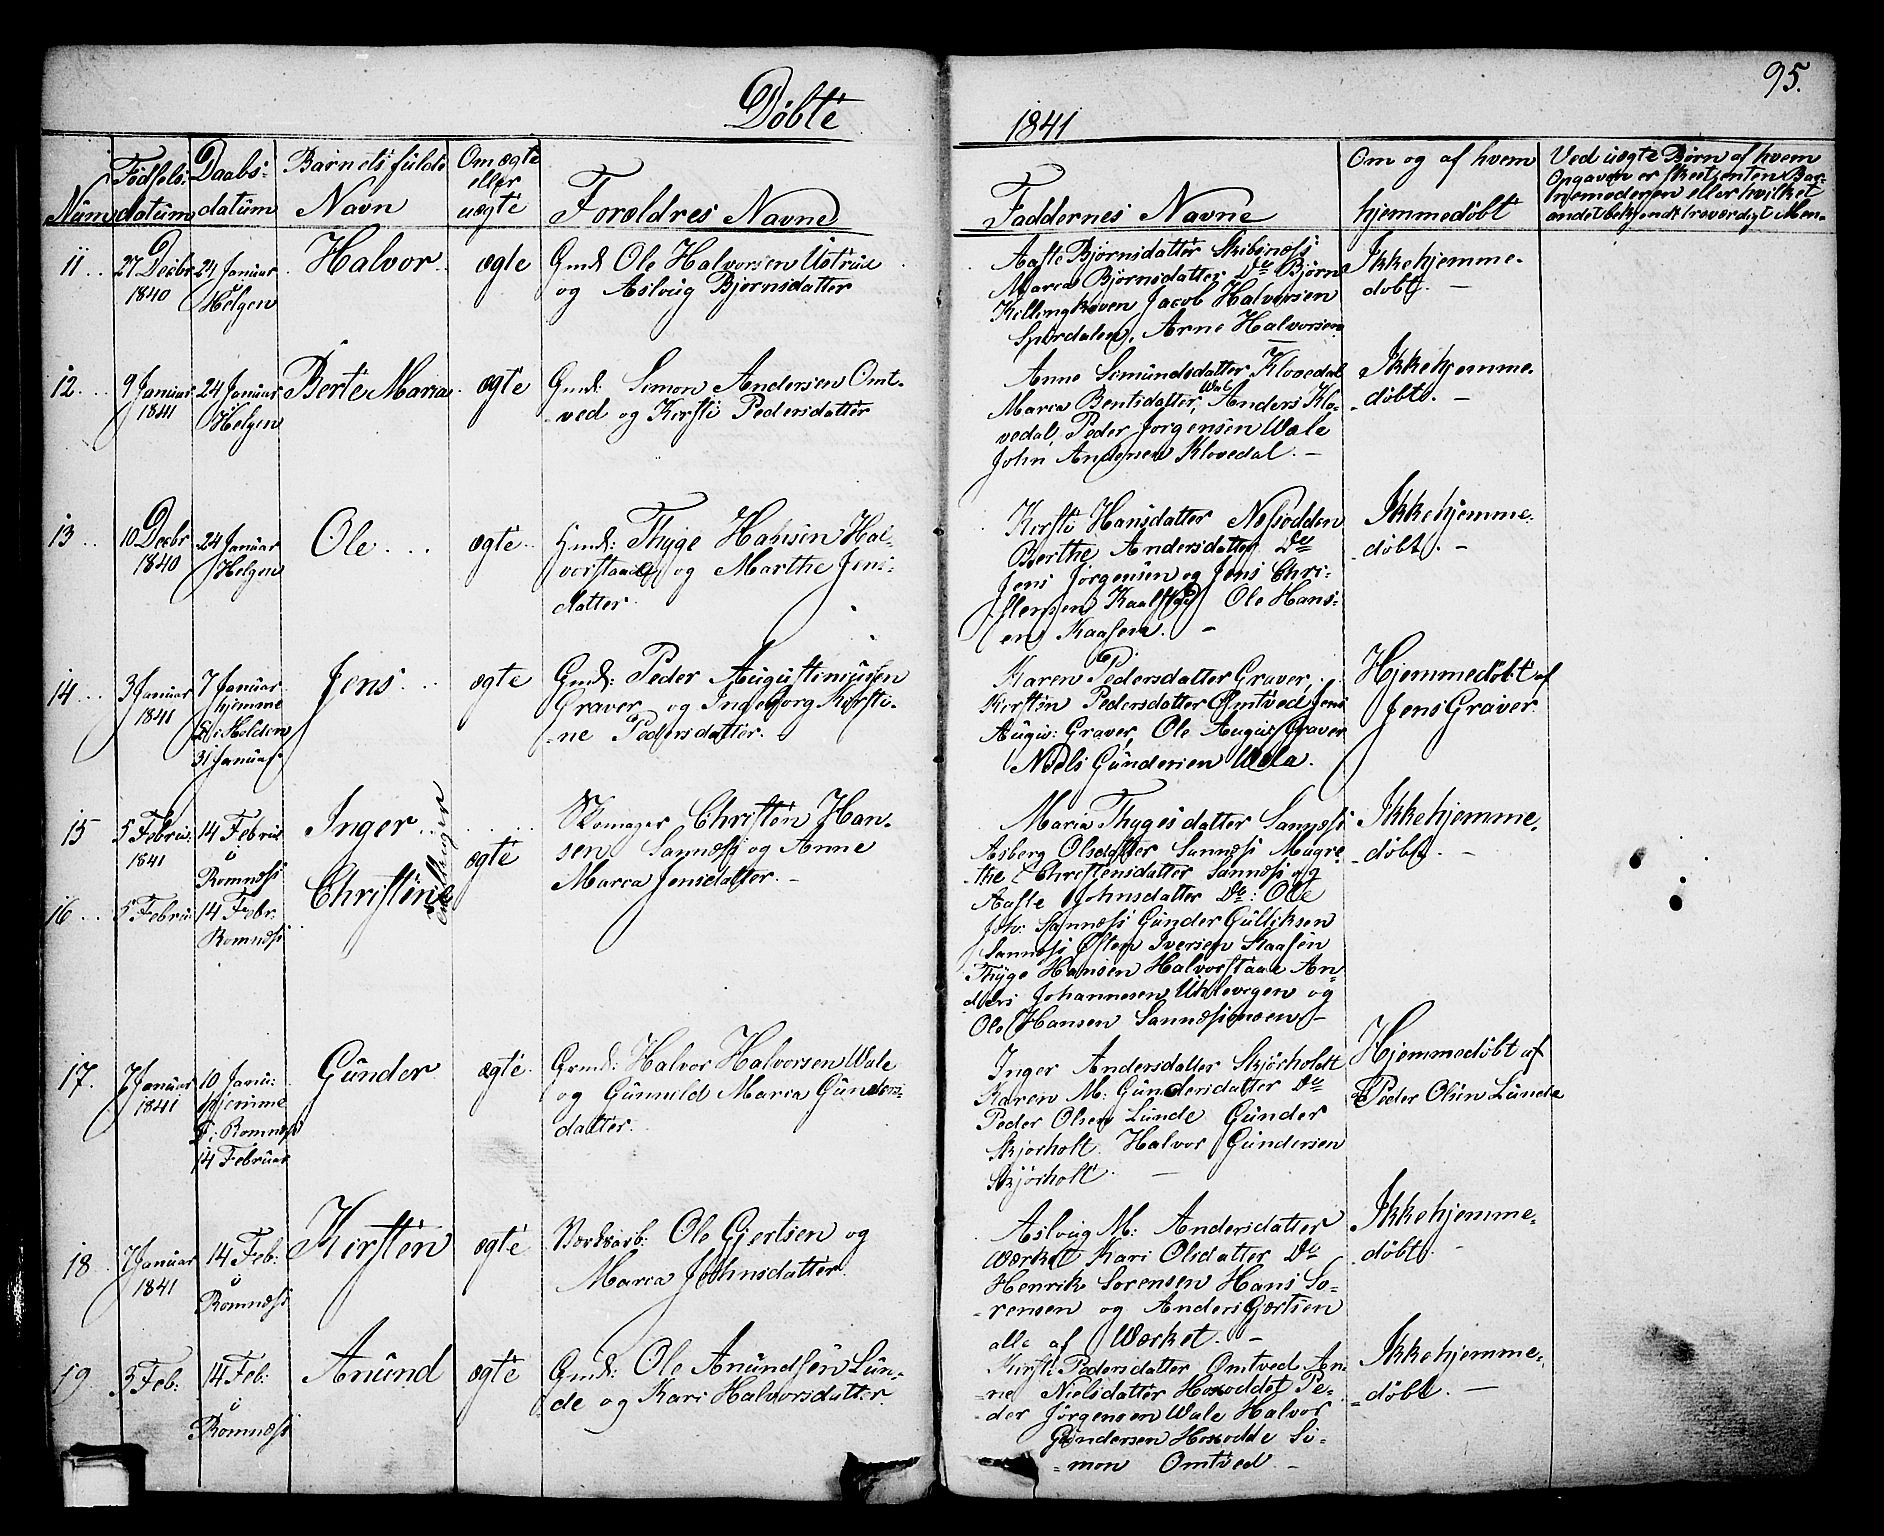 95.
Døbte
1841
Num
Fødsels datum
Daabs- datum
Barnets fulde Navn
Om ægte eller uægte
Forældres Navne
Faddernes Navne
Om og af hvem hjemmedøbt
Ved uægte Børn af hvem
Opgaven er skeet, enten Bar-
nemoderen eller hvilket
andet bekjendt troværdigt Men-
11 ..
27 Decbr
1840
24 Januar
Helgen
Halvor
ægte
Gmd: Ole Halvorsen Ustrud
og Aslvug Bjørnsdatter
Aaste Bjørnsdatter Skibsnæss
Maria Bjørnsdatter Do Bjørn
Jacob Halvorsen
Arne Halvorsen
Ikkehjemme-
døbt. -
12 ..
9 Januar
1841
24 Januar
Helgen
Berte Maria
ægte
Gmd: Simon Andersen Omt-
-ved og Kirsti Pedersdatter
Anne Simundsdatter Klovedal
Maria Bentsdatter, Wale Anders Klo-
vedal, Peder Jørgensen Wale
John Andersen Klovedal. -
Ikkehjemme-
-døbt. -
13 ..
10 Decbr
1840
24 Januar
Helgen
Ole ...
ægte ..
Gmd: Thyge Hansen Hal-
vorstaae og Marthe Jens-
datter
Kirsti Hansdatter Næsodden
Berthe Andersdatter Do
Jens Jørgensen og Jens Chri-
stensen Ole Hans-
en Kaasene. -
Ikkehjemme-
-døbt. -
14 ..
3 Januar
1841
7 Januar
hjemme
D. i Holden
31 Januar
Jens ...
ægte
Gmd: Peder Augustinussen
Graver og Ingeborg Kirsti-
-ne Pedersdatter.
Karen Pedersdatter Graver,
Kirstin Pedersdatter Omtved Jens
Augus: Graver, Ole Augus Graver
Niels Gundersen Wala.
Hjemmedøbt af
Jens Graver
15
5 Februa:
1841
14 Februa
Romnæss
Inger
ægte
Skomager Christen Han-
sen Sannæss og Anne
Maria Jensdatter. -
Maria Thygesdatter Sannæss
Asberg Olsdatter Sannæss Magre-
-the Christensdatter Sannæss og
Aaste Johnsdatter Do: Ole
Joh: Sannæss Gunder Gulliksen
Sannæss Østen Iversen Kaasen
Thyge Hansen Halvorstaae An-
ders Johannesen Uhlevegen og
Ole Hansen Sannæsmoen -
Ikkehjemme-
-døbt. -
16 ..
5 Februa:
14 Febr.
Romnæss
Christine
17.
7 Januar
1841
10 Janu:
hjemme
D. i Romnæss
14 Februar
Gunder
ægte.
Gmd: Halvor Halvorsen Wale
og Gunnild Maria Gunders-
datter.
Inger Andersdatter Skjørholdt
Karen M: Gundersdatter Do
Peder Olsen Lunde Gunder
Skjørholt Halvor Gundersen
Skjørholt. -
Hjemmedøbt af
Peder Olsen Lunde
18
7 Januar
1841
14 Feb:
Romnæss
Kirsten
ægte
Værksarb: Ole Gjertsen og
Maria Johnsdatter.
Aslvug M: Andersdatter
Værket Kari Olsdatter Do
Henrik Sørensen Hans Sø-
-rensen og Anders Gjertsen
alle af Værket. -
Ikkehjemme-
døbt. -
19
3 Feb:
14 Feb:
Romnæss
Anund
ægte
Gmd: Ole Anundsen Lun-
-de og Kari Halvorsdatter.
Kirsti Pedersdatter Omtved An-
-ne Nielsdatter Hoxoddet Pe-
-der Jørgensen Wale Halvor
Gundersen Hoxodde Si-
-mon Omtved. -
Ikkehjemme-
-døbt. -